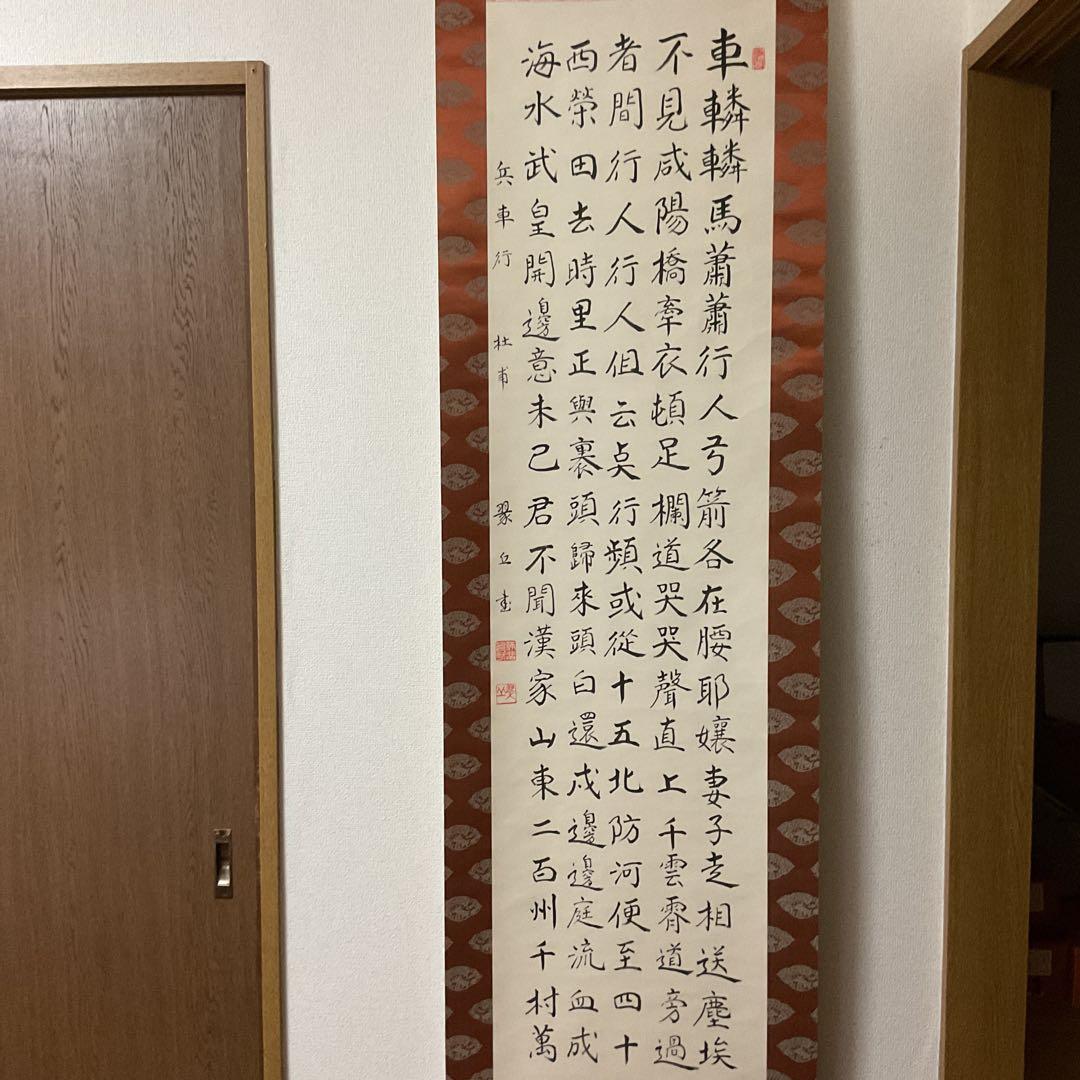 車轔轔馬蕭蕭行人弓箭各在腰耶孃妻子走相送塵埃
不見咸陽橋牽衣頓足欄道哭哭聲直上千雲霄道旁過
者間行人行人但云奌行頻或從十五北防河便至四十
西榮田去時里正與裹頭歸來頭白還戍邊邊庭流血成
海水武皇開邊意未已君不聞漢家山東二百州千村萬
兵車行 杜甫 丘書